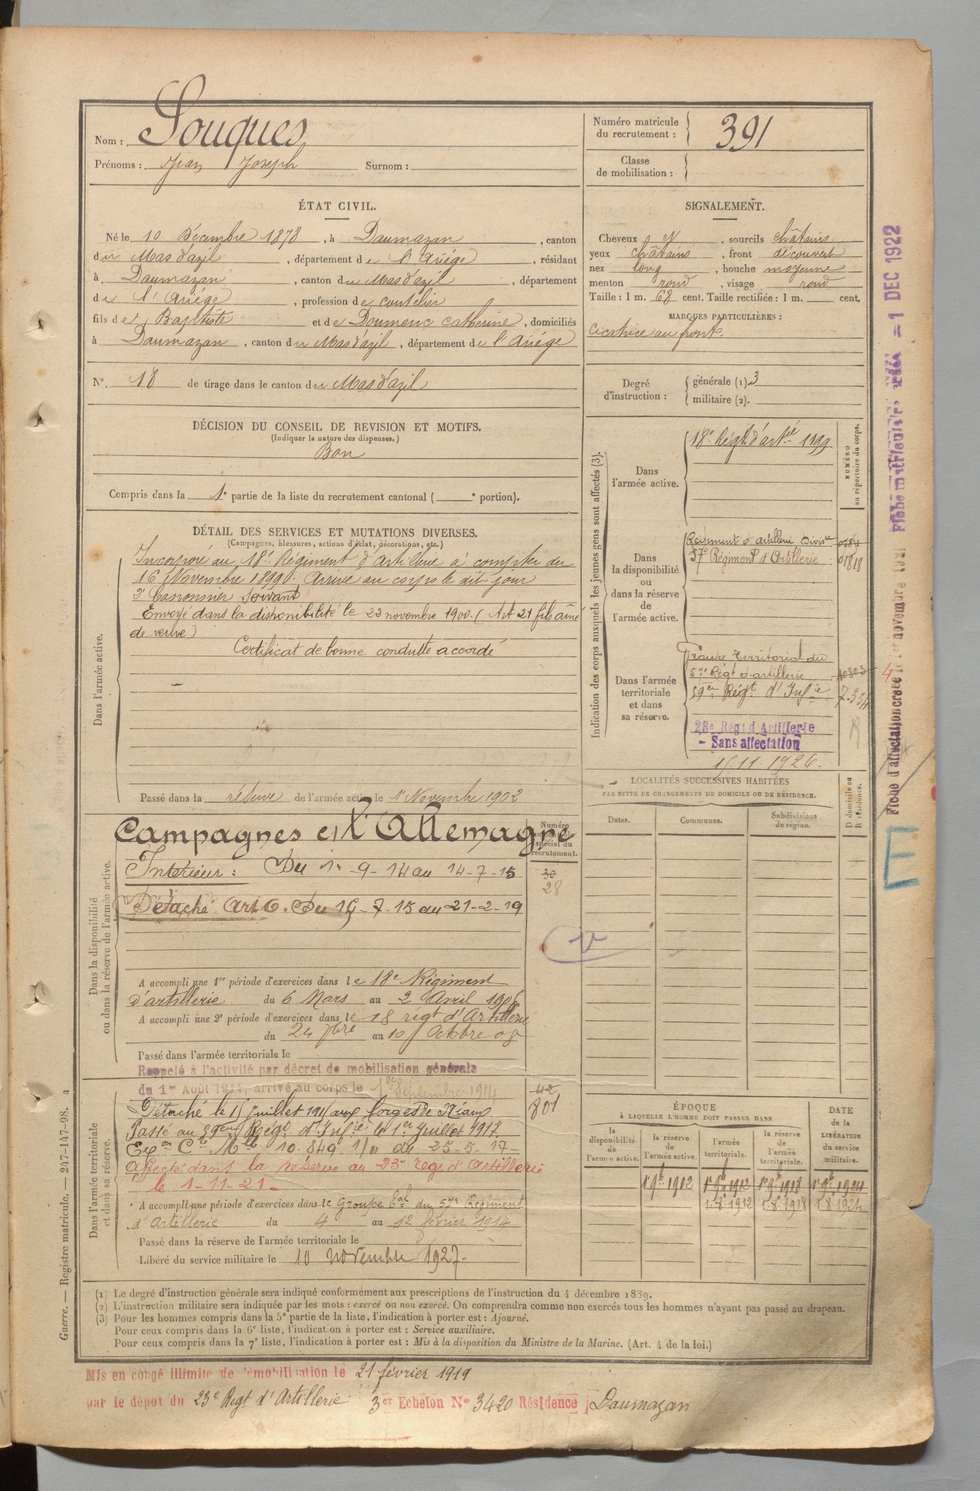 Nom : Souques
Prénoms : Jean Joseph Surnom :
Numéro matricule du recrutement : 391
Classe de mobilisation :
ÉTAT CIVIL.
Né le 10 Décembre 1878, à Daumazan, canton
du Mas d'azil, département de l'Ariège, résidant
à Daumazan, canton du Mas d'azil, département
de l'Ariège, profession de
fils de Baptiste et de Doumenc Catherine, domiciliés
à Daumazan, canton du Mas d'azil, département de l'Ariège
N° 18 de tirage dans le canton du Mas d'azil
SIGNALEMENT.
Cheveux sourcils châtains
yeux châtains, front découvert
nez long, bouche moyenne
menton rond, visage rond
Taille : 1 m. 68 cent. Taille rectifiée : 1 m. cent.
MARQUES PARTICULIÈRES :
Cicatrice au front.
Degré d'instruction : générale (1). 3
militaire (2).
DÉCISION DU CONSEIL DE REVISION ET MOTIFS.
(Indiquer la nature des dispenses.)
Bon
Compris dans la 1e partie de la liste du recrutement cantonal ( e portion).
DÉTAIL DES SERVICES ET MUTATIONS DIVERSES.
(Campagnes, blessures, actions d'éclat, décorations, etc.)
Dans l'armée active.
Incorporé au 18e Régiment d'Artillerie à compter du
16 Novembre 1899. Arrivé au corps le dit jour
2e Canonnier Servant
Envoyé dans la disponibilité le 23 novembre 1900. (Art 21 fils ainé
de veuve)
Certificat de bonne conduite accordé
Passé dans la réserve de l'armée active le 1er Novembre 1902
Indication des corps auxquels les jeunes gens sont affectés (3).
NUMÉRO au répertoire du corps.
Dans l'armée active.
18e Régt d'artie 1899
Dans la disponibilité ou dans la réserve de l'armée active.
Régiment d'artillerie Divire
57e Régiment d'Artillerie 01818
Dans l'armée territoriale et dans sa réserve.
Groupe territorial du
57e Régt d'artillerie
59eme Régt d'Infie
23e Régt d'Artillerie
- Sans affectation
15.11.1926.
LOCALITÉS SUCCESSIVES HABITÉES
PAR SUITE DE CHANGEMENTS DE DOMICILE OU DE RÉSIDENCE.
Dates. Communes. Subdivisions de région. D domicile ou R résidence.
Dans la disponibilité ou dans la réserve de l'armée active.
Campagnes c/ l'Allemagne
Intérieur : Du 1er-9-14 au 14-7-15
Détaché Art O. Du 15-7-15 au 21-2-19
Numéro spécial du recrutement.
28
A accompli une 1re période d'exercices dans le 18e Régiment
d'artillerie du 6 Mars au 2 Avril 1906
A accompli une 2e période d'exercices dans le 18 régt d'Artillerie
du 24 7bre au 10 Octobre 08
Passé dans l'armée territoriale le
Rappelé à l'activité par décret de mobilisation générale
du 1er Août 1914, arrivé au corps le 1er Septembre 1914
Dans l'armée territoriale et dans sa réserve.
801
Détaché le 15 juillet 1915 aux forges
Passé au 59eme Régt d'Infie le 1er juillet 1917
affecté dans la réserve au 23e régt d'artillerie
le 1-11-21-
A accompli une période d'exercices dans le Groupe tal du 57e Régiment
d'Artillerie du 4 au 12 février 1914
Passé dans la réserve de l'armée territoriale le
Libéré du service militaire le 10 novembre 1927-
ÉPOQUE
À LAQUELLE L'HOMME DOIT PASSER DANS
DATE DE LA LIBÉRATION du service militaire.
la disponibilité de l'armée active. la réserve de l'armée active. l'armée territoriale. la réserve de l'armée territoriale.
1er 9bre 1902 1er 9bre 1912 1er 9bre 1918 1er 9bre 1924
1.8.1912 1.8.1918 1.8.1924
(1) Le degré d'instruction générale sera indiqué conformément aux prescriptions de l'instruction du 4 décembre 1889.
(2) L'instruction militaire sera indiquée par les mots : exercé ou non exercé. On comprendra comme non exercés tous les hommes n'ayant pas passé au drapeau.
(3) Pour les hommes compris dans la 5e partie de la liste, l'indication à porter est : Ajourné.
Pour ceux compris dans la 6e liste, l'indication à porter est : Service auxiliaire.
Pour ceux compris dans la 7e liste, l'indication à porter est : Mis à la disposition du Ministre de la Marine. (Art. 4 de la loi.)
Mis en congé illimité de démobilisation le 21 février 1919
par le dépôt du 23e Régt d'Artillerie 3er Echelon No 3420 Résidence Daumazan
Guerre. — Registre matricule. — 247-147-98.
Fiche d'affectation créée le 1er novembre 1921
1 DEC 1922